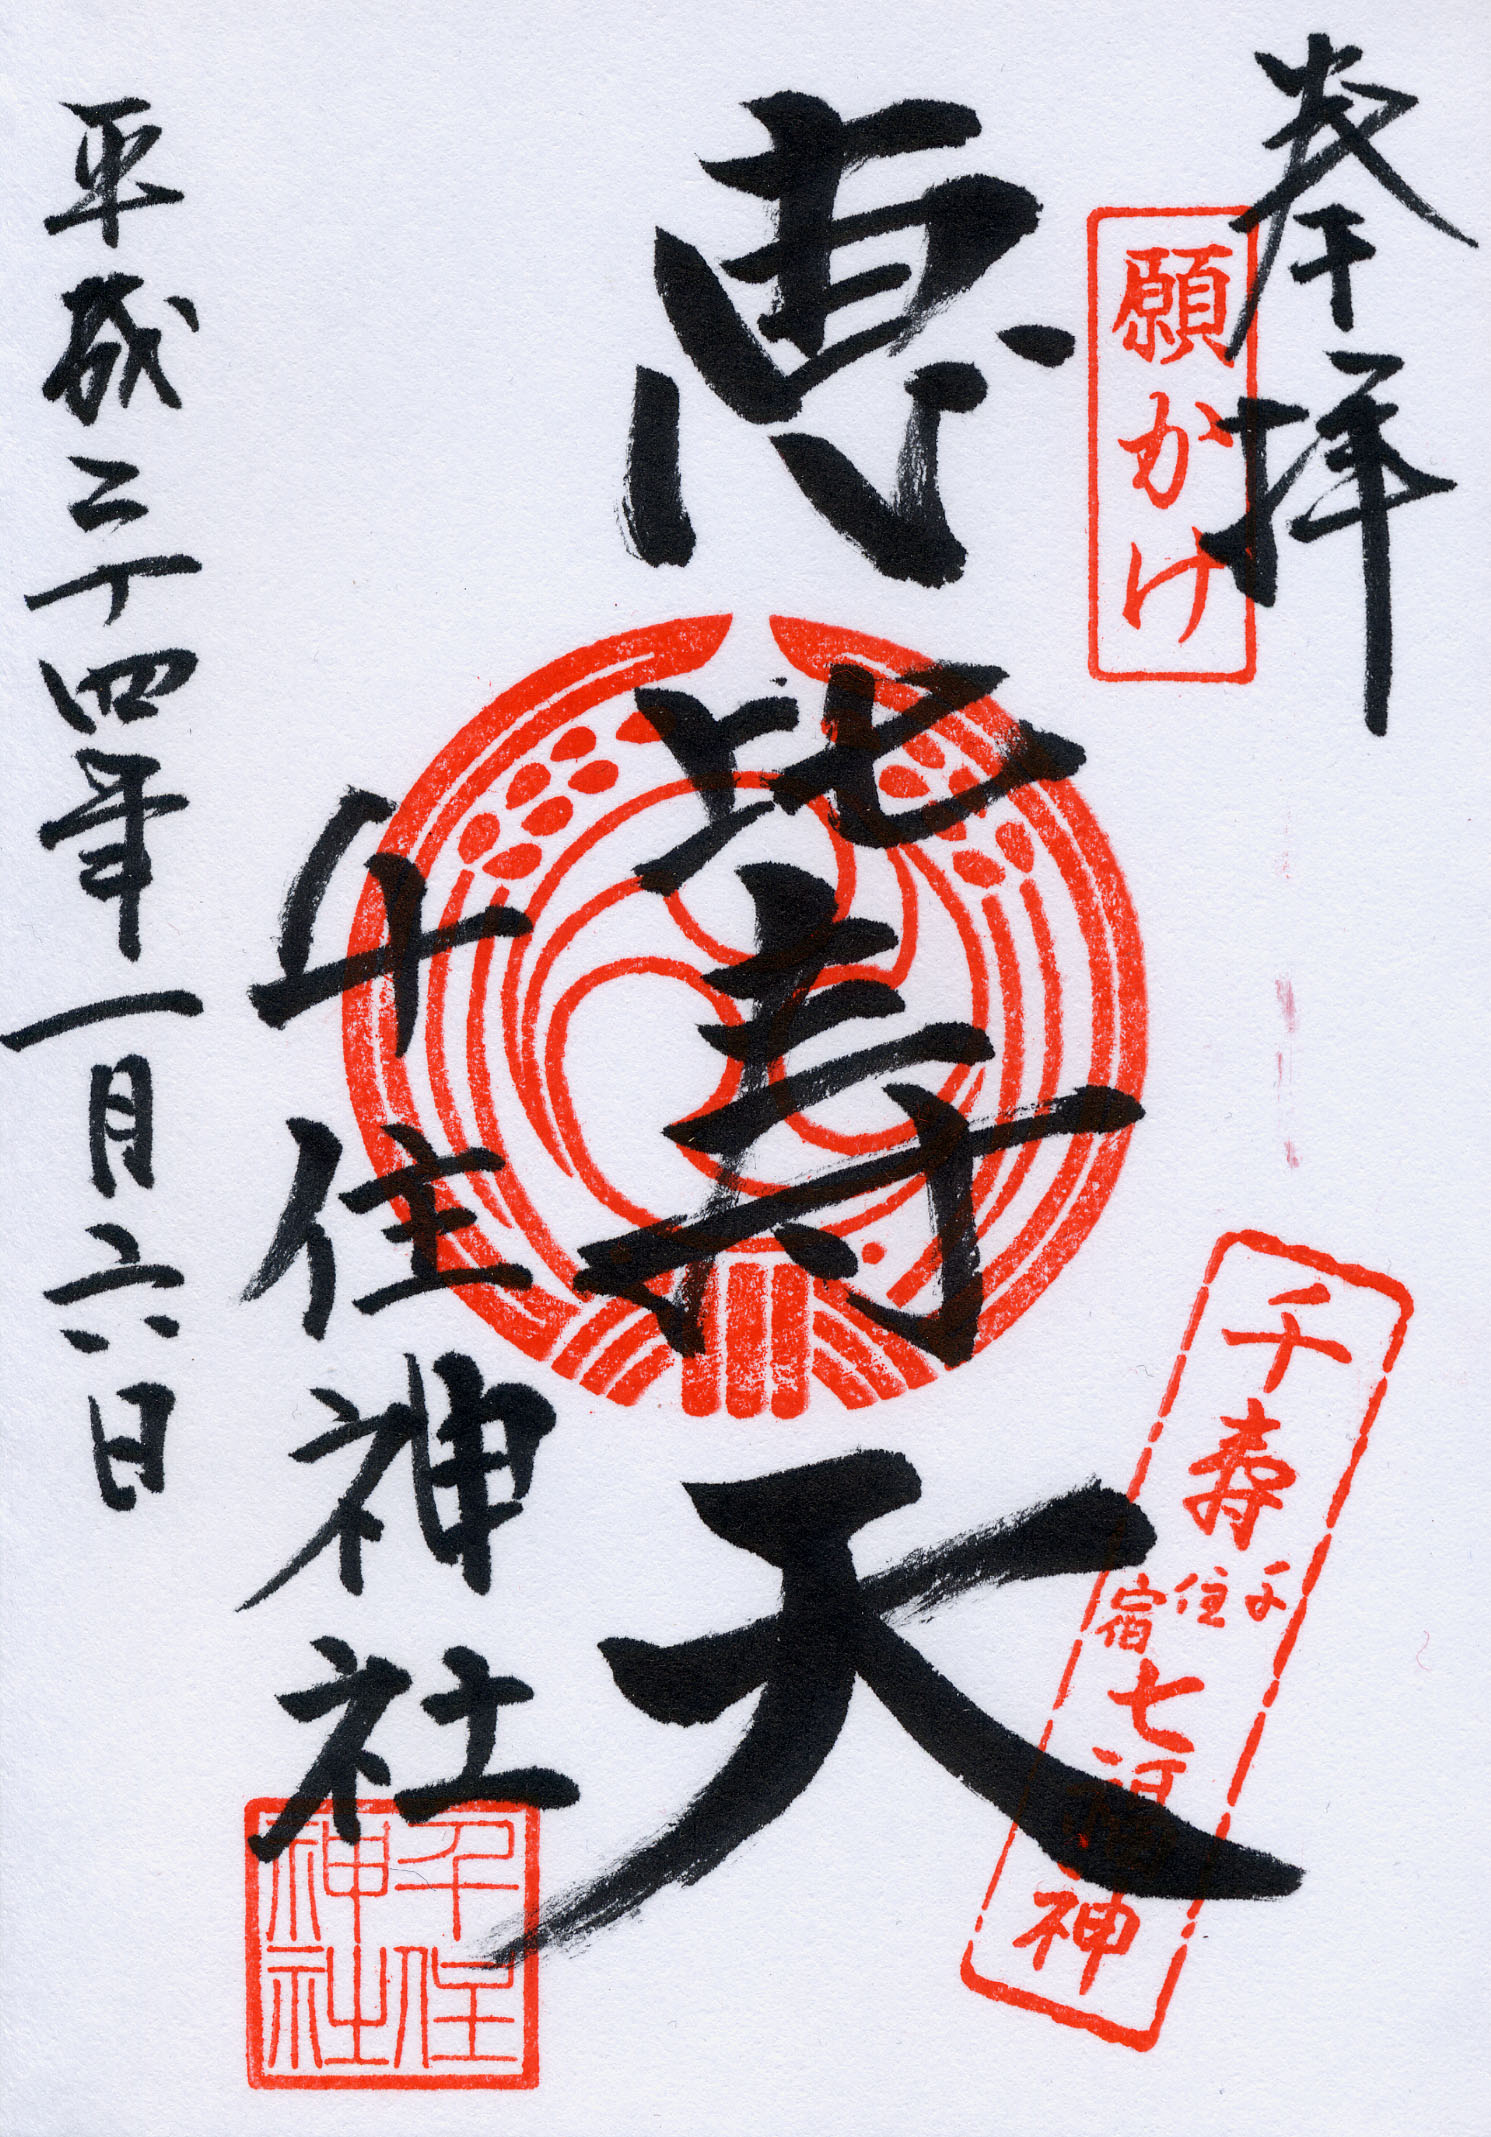 奉拝
願かけ
千寿
千住宿
七福神
恵比寿天
千住神社
千住
神社
平成二十四年一月六日